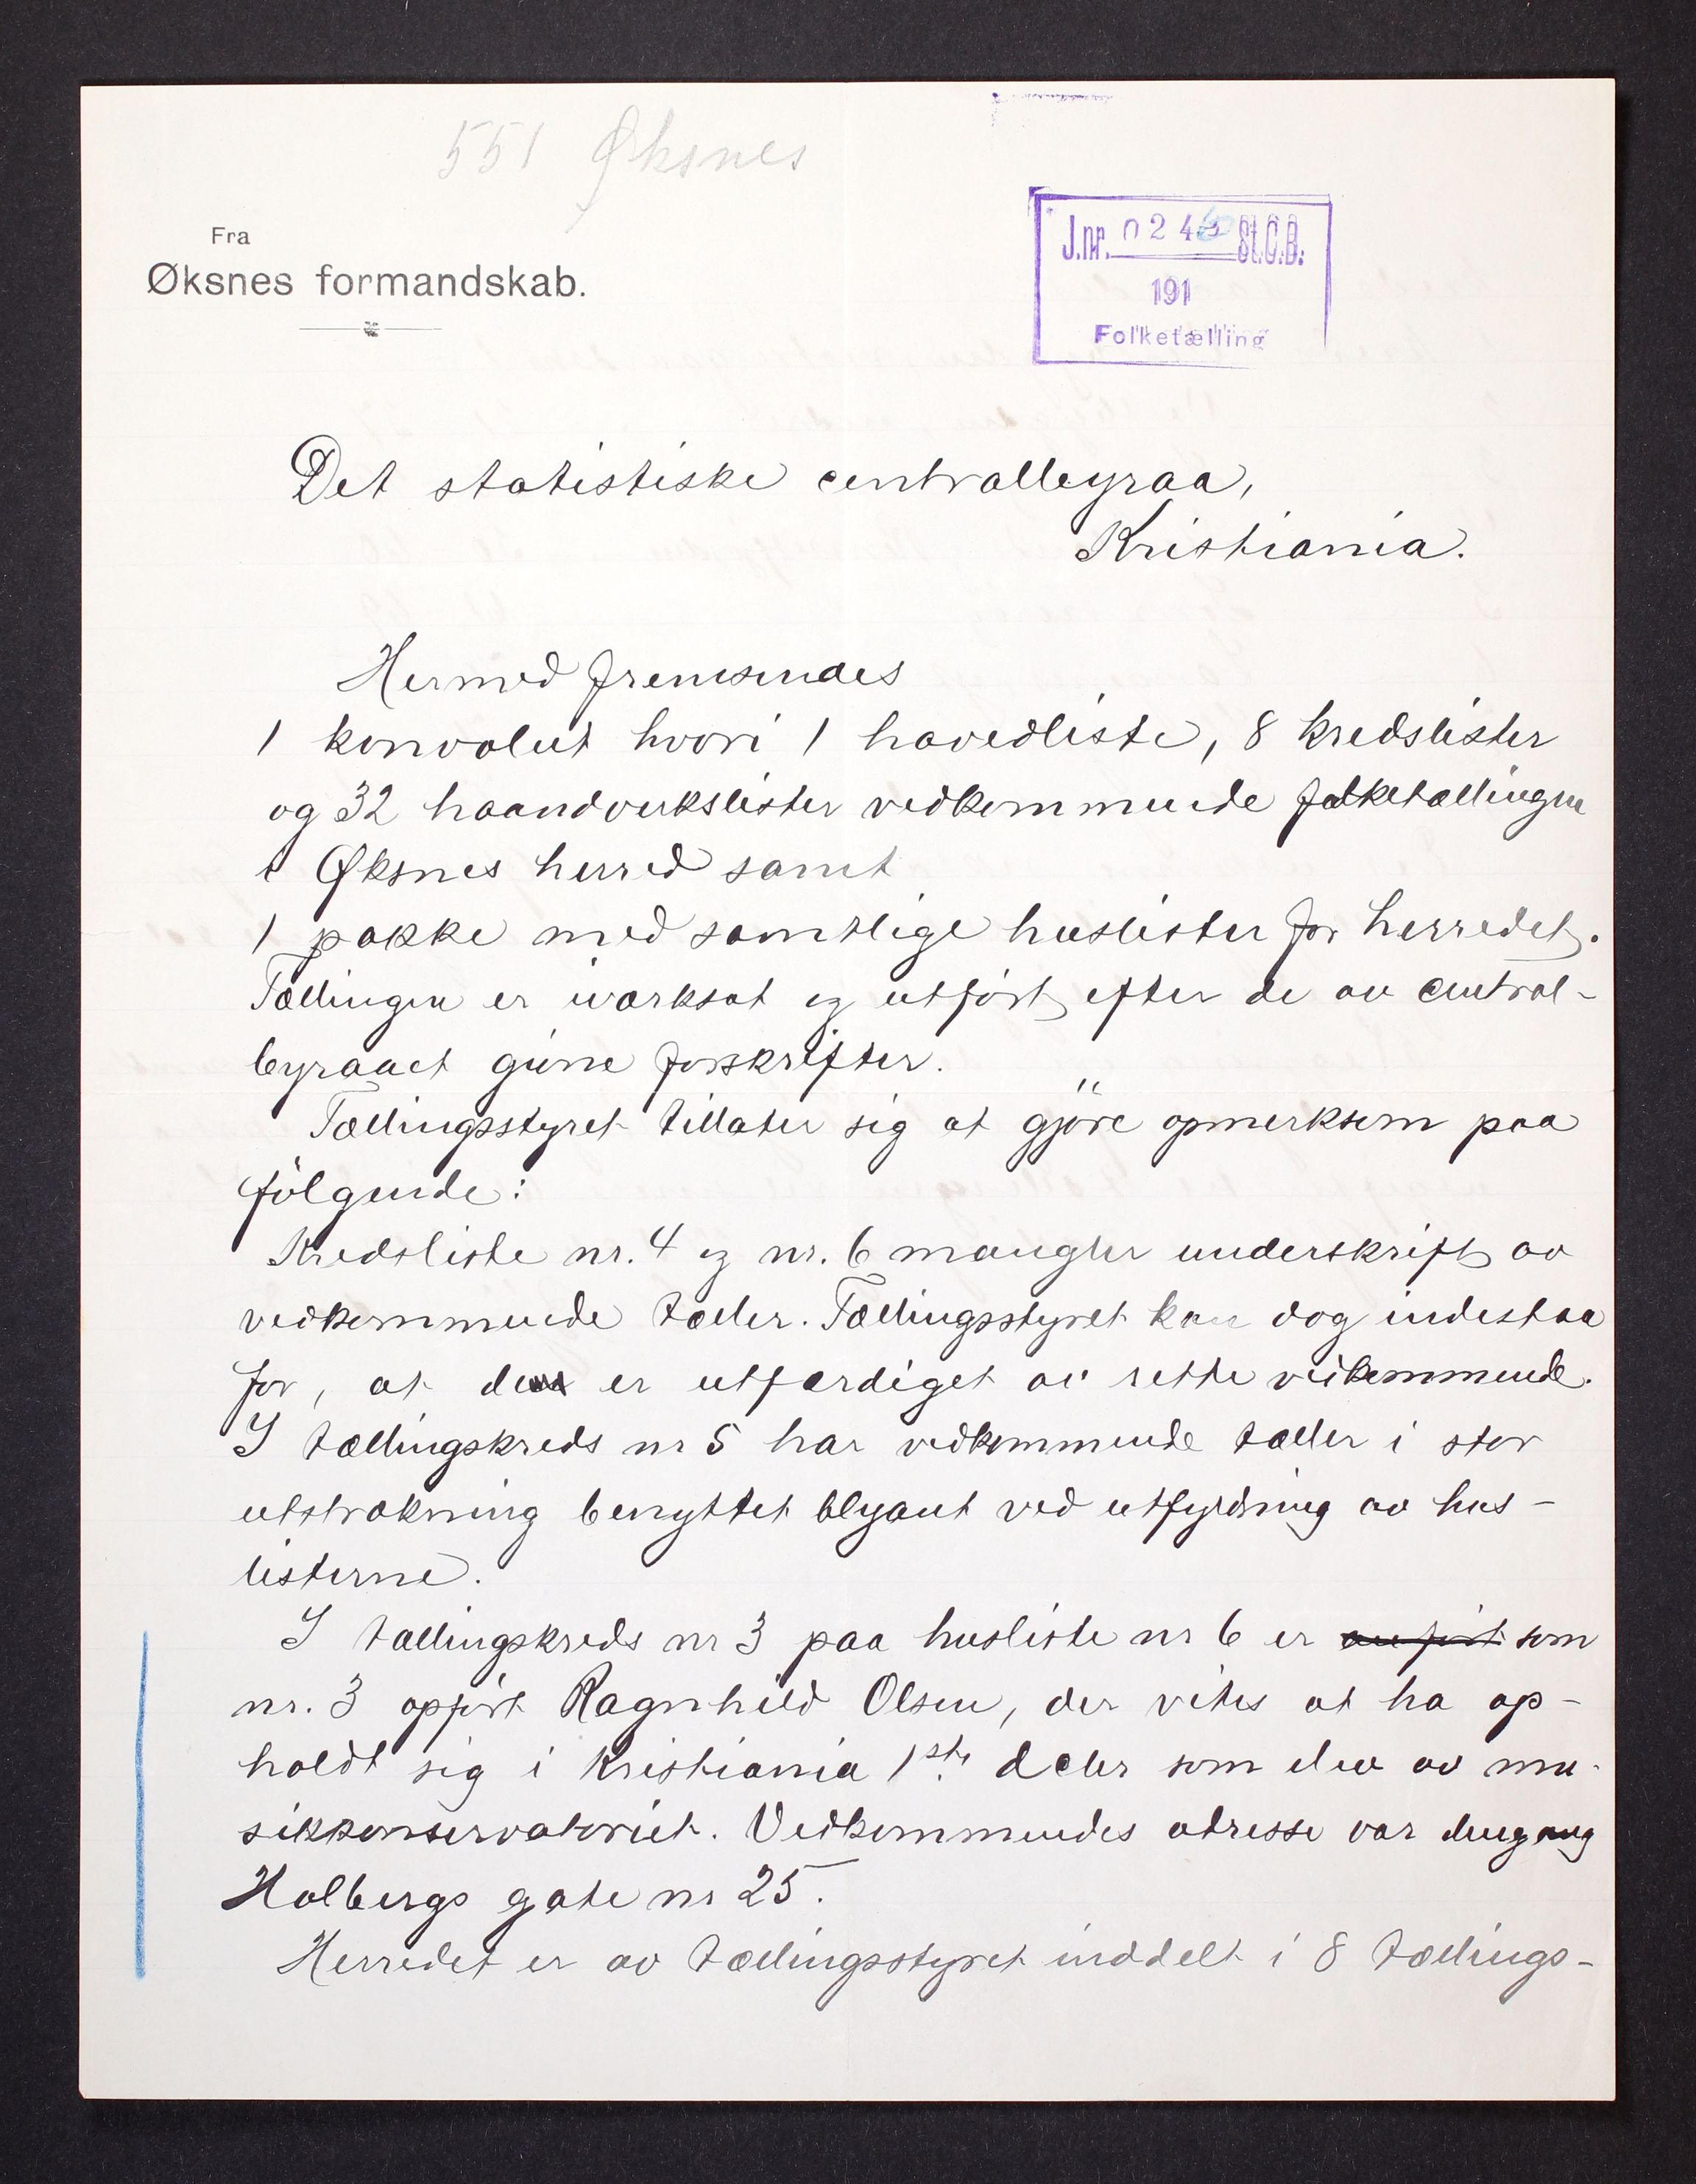 551 Øksnes
Fra
Øksnes formandskab.
J.nr. 024 St.C.B.
191
Folketælling
Det statistiske centralbyraa,
Kristiania.
Hermed fremsendes
1 konvolut hvori 1 hovedliste, 8 kredslister
og 32 haandverkslister vedkommende folketællingen
i Øksnes herred samt
1 pakke med samtlige huslister for herredet.
Tællingen er iværksat og utført efter de av central-
byraaet givne forskrifter.
Tællingsstyret tillater sig at gjöre opmerksom paa
følgende:
Kredsliste nr. 4 og nr. 6 mangler underskrift av
vedkommende tæller. Tællingsstyret kan dog indestaa
for, at den er utfærdiget av rette vedkommende.
I tællingskreds nr 5 har vedkommende tæller i stor
utstrækning benyttet blyant ved utfyldning av hus-
listerne.
I tællingskreds nr 3 paa husliste nr 6 er anført som
nr. 3 opført Ragnhild Olsen, der vites at ha op-
holdt sig i Kristiania 1ste dcbr som elev av mu-
sikkonservatoriet. Vedkommendes adresse var dengang
Holbergs gate nr 25.
Herredet er av tællingsstyret inddelt i 8 tællings-